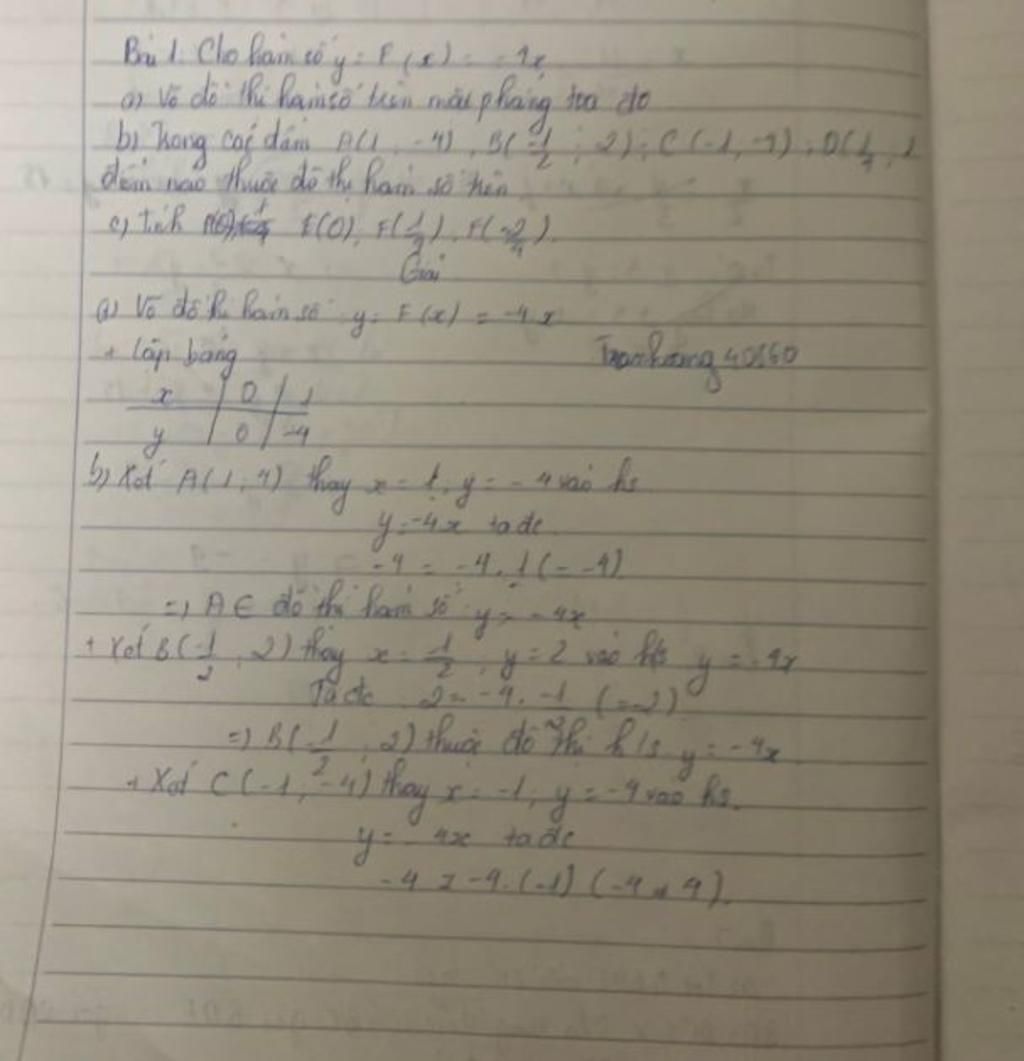 Bài 1. Cho hàm số y = F(x) = -4x
a) Vẽ đồ thị hàm số trên mặt phẳng toa đo
b) Trong các điểm A(1, -4), B(-1/2; 2); C(-1, -4); D(
điểm nào thuộc đồ thị hàm số trên
c) Tính F(0), F(
Giải
a) Vẽ đồ thị hàm số y = F(x) = -4x
+ Lập bảng
x | 0 | 1
y | 0 | -4
b) Xét A(1, 4) thay x = 1, y = -4 vào hs
y = -4x ta đc
-4 = -4.1 (= -4)
=> A ∈ đồ thị hàm số y = -4x
+ Xét B(-1/2, 2) thay x = -1/2, y = 2 vào h/s y = -4x
Ta đc 2 = -4. -1/2 (=2)
=> B(-1/2, 2) thuộc đồ thị h/s y = -4x
+ Xét C(-1, -4) thay x = -1, y = -4 vào hs.
y = -4x ta đc
-4 -4.(-1) (-4 4).